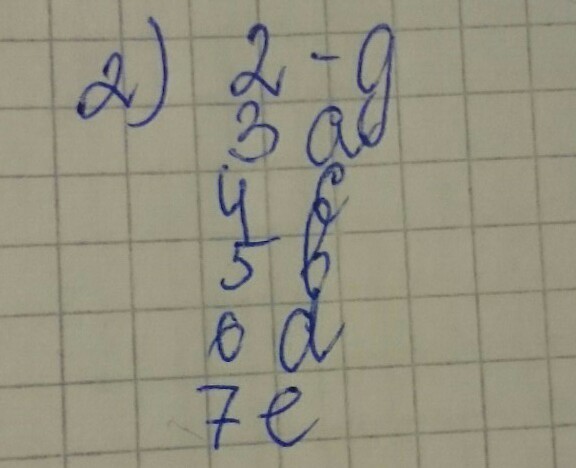 2) 2 - g
3 a
4 c
5 b
6 d
7 e